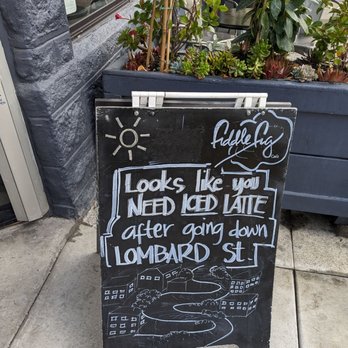 fiddle fig
cafe
Looks like you
NEED ICED LATTE
after going down
LOMBARD St.